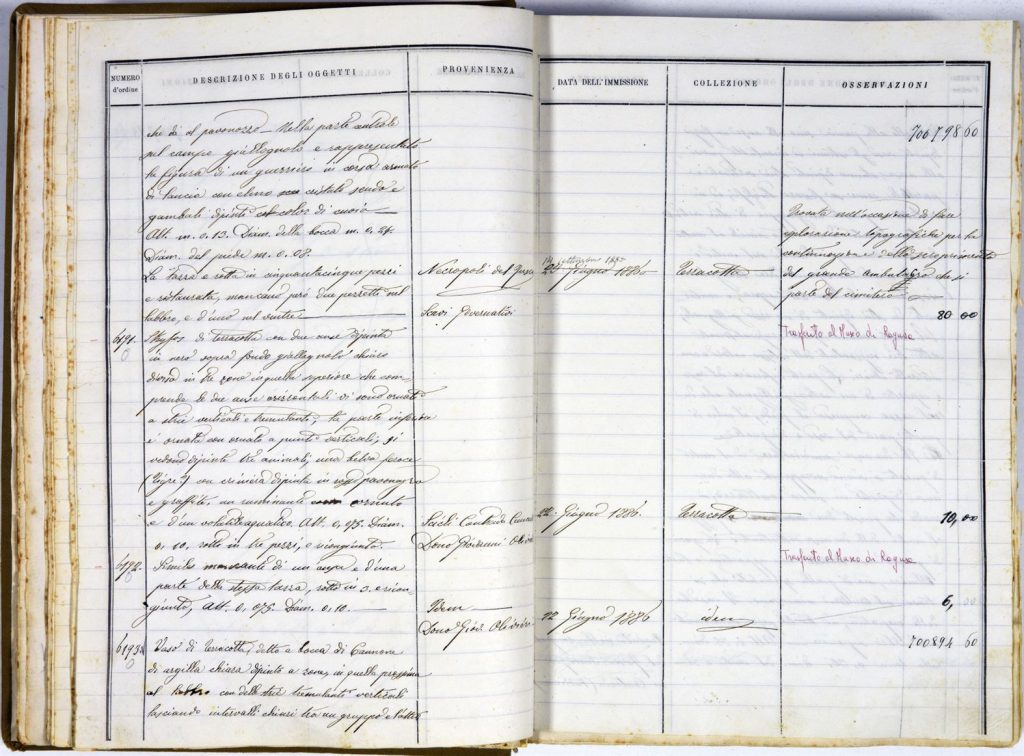 NUMERO
d'ordine
DESCRIZIONE DEGLI OGGETTI
PROVENIENZA
DATA DELL'IMMISSIONE
COLLEZIONE
OSSERVAZIONI
706798 60
che dà al pavonazzo – Nella parte
nel campo giallognolo è rappresentata
la figura di un guerriero in corsa armato
di lancia con elmo cristato scudo e
gambali dipinto color di cuoio
Alt. m. 0.13. Diam. della bocca m. 0.24.
Diam. del piede m. 0.08.
La tazza è rotta in cinquantacinque pezzi
e restaurata, mancano però due pezzetti nel
labbro, e d'uno nel ventre
Necropoli del
Scavi Governativi
Giugno 1886
Terracotta
Trovata nell'occasione di fare
esplorazioni topografiche per la
continuazione della
del grande ambulacro che si
parte del cimitero
80 00
Trasferito al Museo di Ragusa
6191.
Skyfos di terracotta con due anse dipinta
in nero sopra fondo giallognolo chiaro
divisa in tre zone in quella superiore che com-
prende le due anse orizzontali vi sono ornati
a strie verticali e tremolanti; la parte inferiore
è ornata con ornato a punte verticali, si
vedono dipinte tre animali, una belva feroce
(tigre) con criniera dipinta in
e graffite, un ruminante cornuto
e d'un volatile aquatico. Alt. 0,075. Diam.
0,10. rotto in tre pezzi, e ricongiunto.
Scicli Contrada
Dono Giovanni
22 Giugno 1886
Terracotta
10,00
Trasferito al Museo di Ragusa
6192.
Simile mancante di un ansa e d'una
parte della stessa tazza, rotto in 3. e ricon-
giunto, Alt. 0,075. Diam. 0,10.
Idem
Dono Giov.
22 Giugno 1886
idem
6,
700894 60
6193.
Vaso di terracotta, detto a bocca di Cannone
di argilla chiara dipinto a zone, in quella prossima
al labbro con delle strie tremolanti verticali
lasciando intervalli chiari tra un gruppo e l'altro